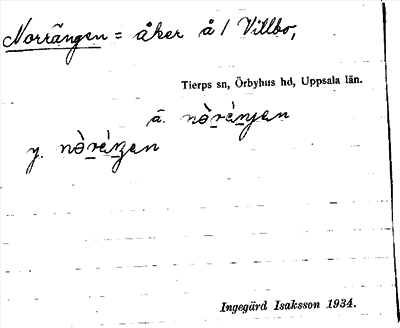 Norrängen = åker å / Villbo,
Tierps sn, Örbyhus hd, Uppsala län.
ä. nòrénjen
y. nòrénjen
Ingegärd Isaksson 1934.